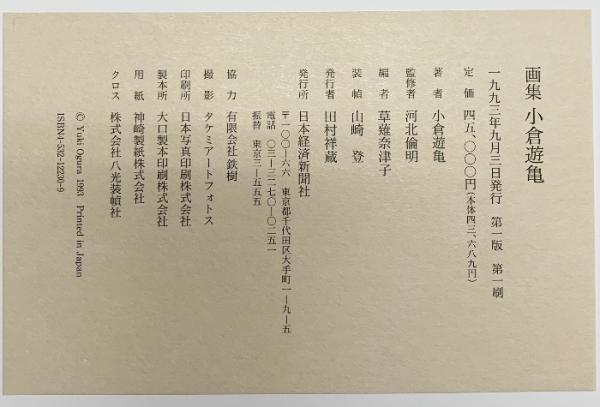 画集 小倉遊亀
一九九三年九月三日発行 第一版 第一刷
定価 四五、〇〇〇円(本体四三、六八九円)
著者 小倉遊亀
監修者 河北倫明
編者 草薙奈津子
装幀 山崎登
発行者 田村祥蔵
発行所 日本経済新聞社
〒一〇〇―六六 東京都千代田区大手町一―九―五
電話 〇三―三二七〇―〇二五一
振替 東京三―五五五
協力 有限会社 鉄樹
撮影 タケミアートフォトス
印刷所 日本写真印刷株式会社
製本所 大口製本印刷株式会社
用紙 神崎製紙株式会社
クロス 株式会社 八光装幀社
© Yuki Ogura 1993 Printed in Japan
ISBN4-532-12230-9